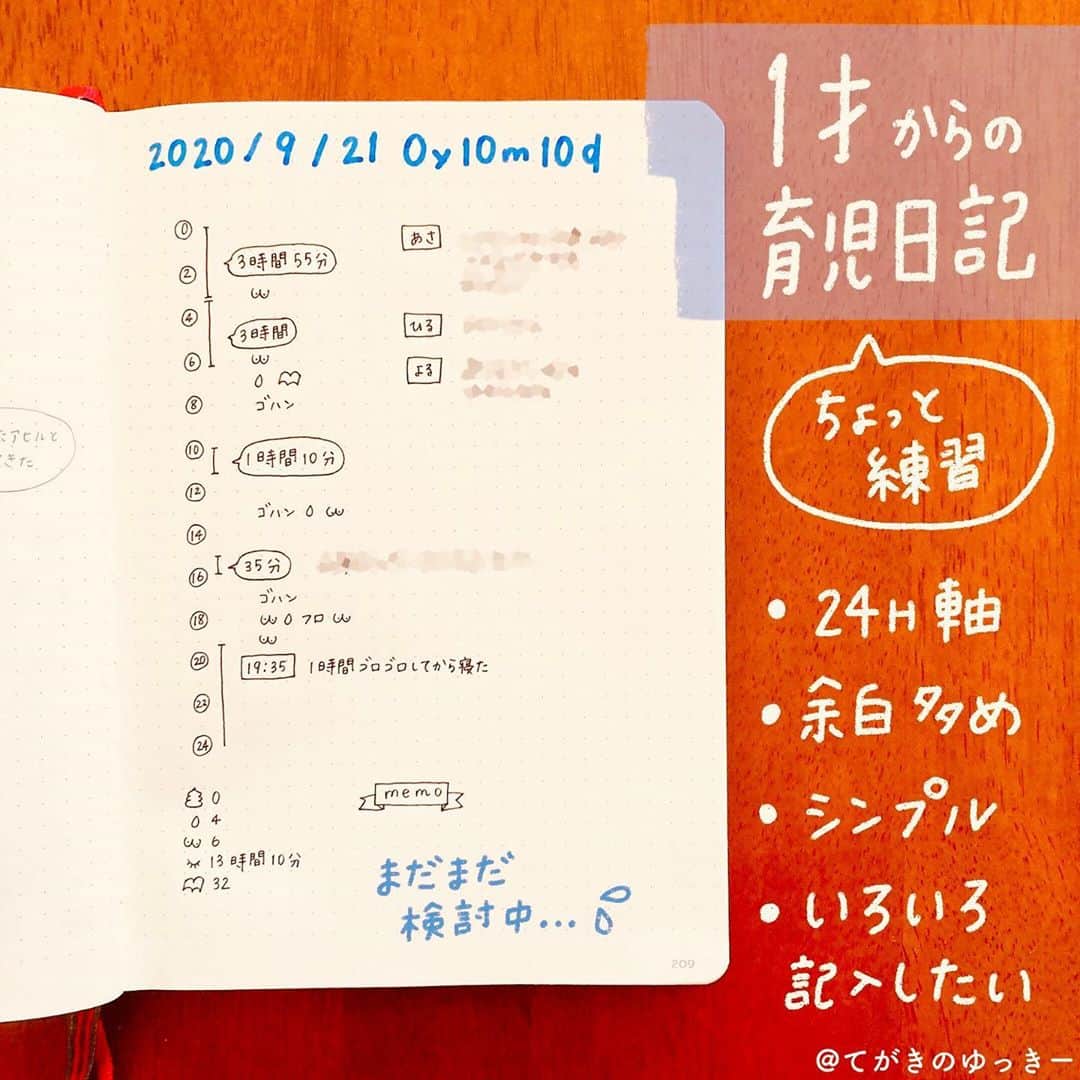 1才からの
育児日記
ちょっと
練習
• 24H軸
• 余白多め
• シンプル
• いろいろ
記入したい
@てがきのゆっきー
2020/9/21 0y10m10d
0
3時間55分
2
ω
4
3時間
6
ω
0
8
ゴハン
10
1時間10分
12
ゴハン 0 ω
14
16
35分
ゴハン
18
ω 0 フロ ω
ω
20
19:35 1時間ゴロゴロしてから寝た
22
24
あさ
ひる
よる
0
0 4
ω 6
13時間10分
32
memo
まだまだ
検討中...
209
たアヒルと
きた。